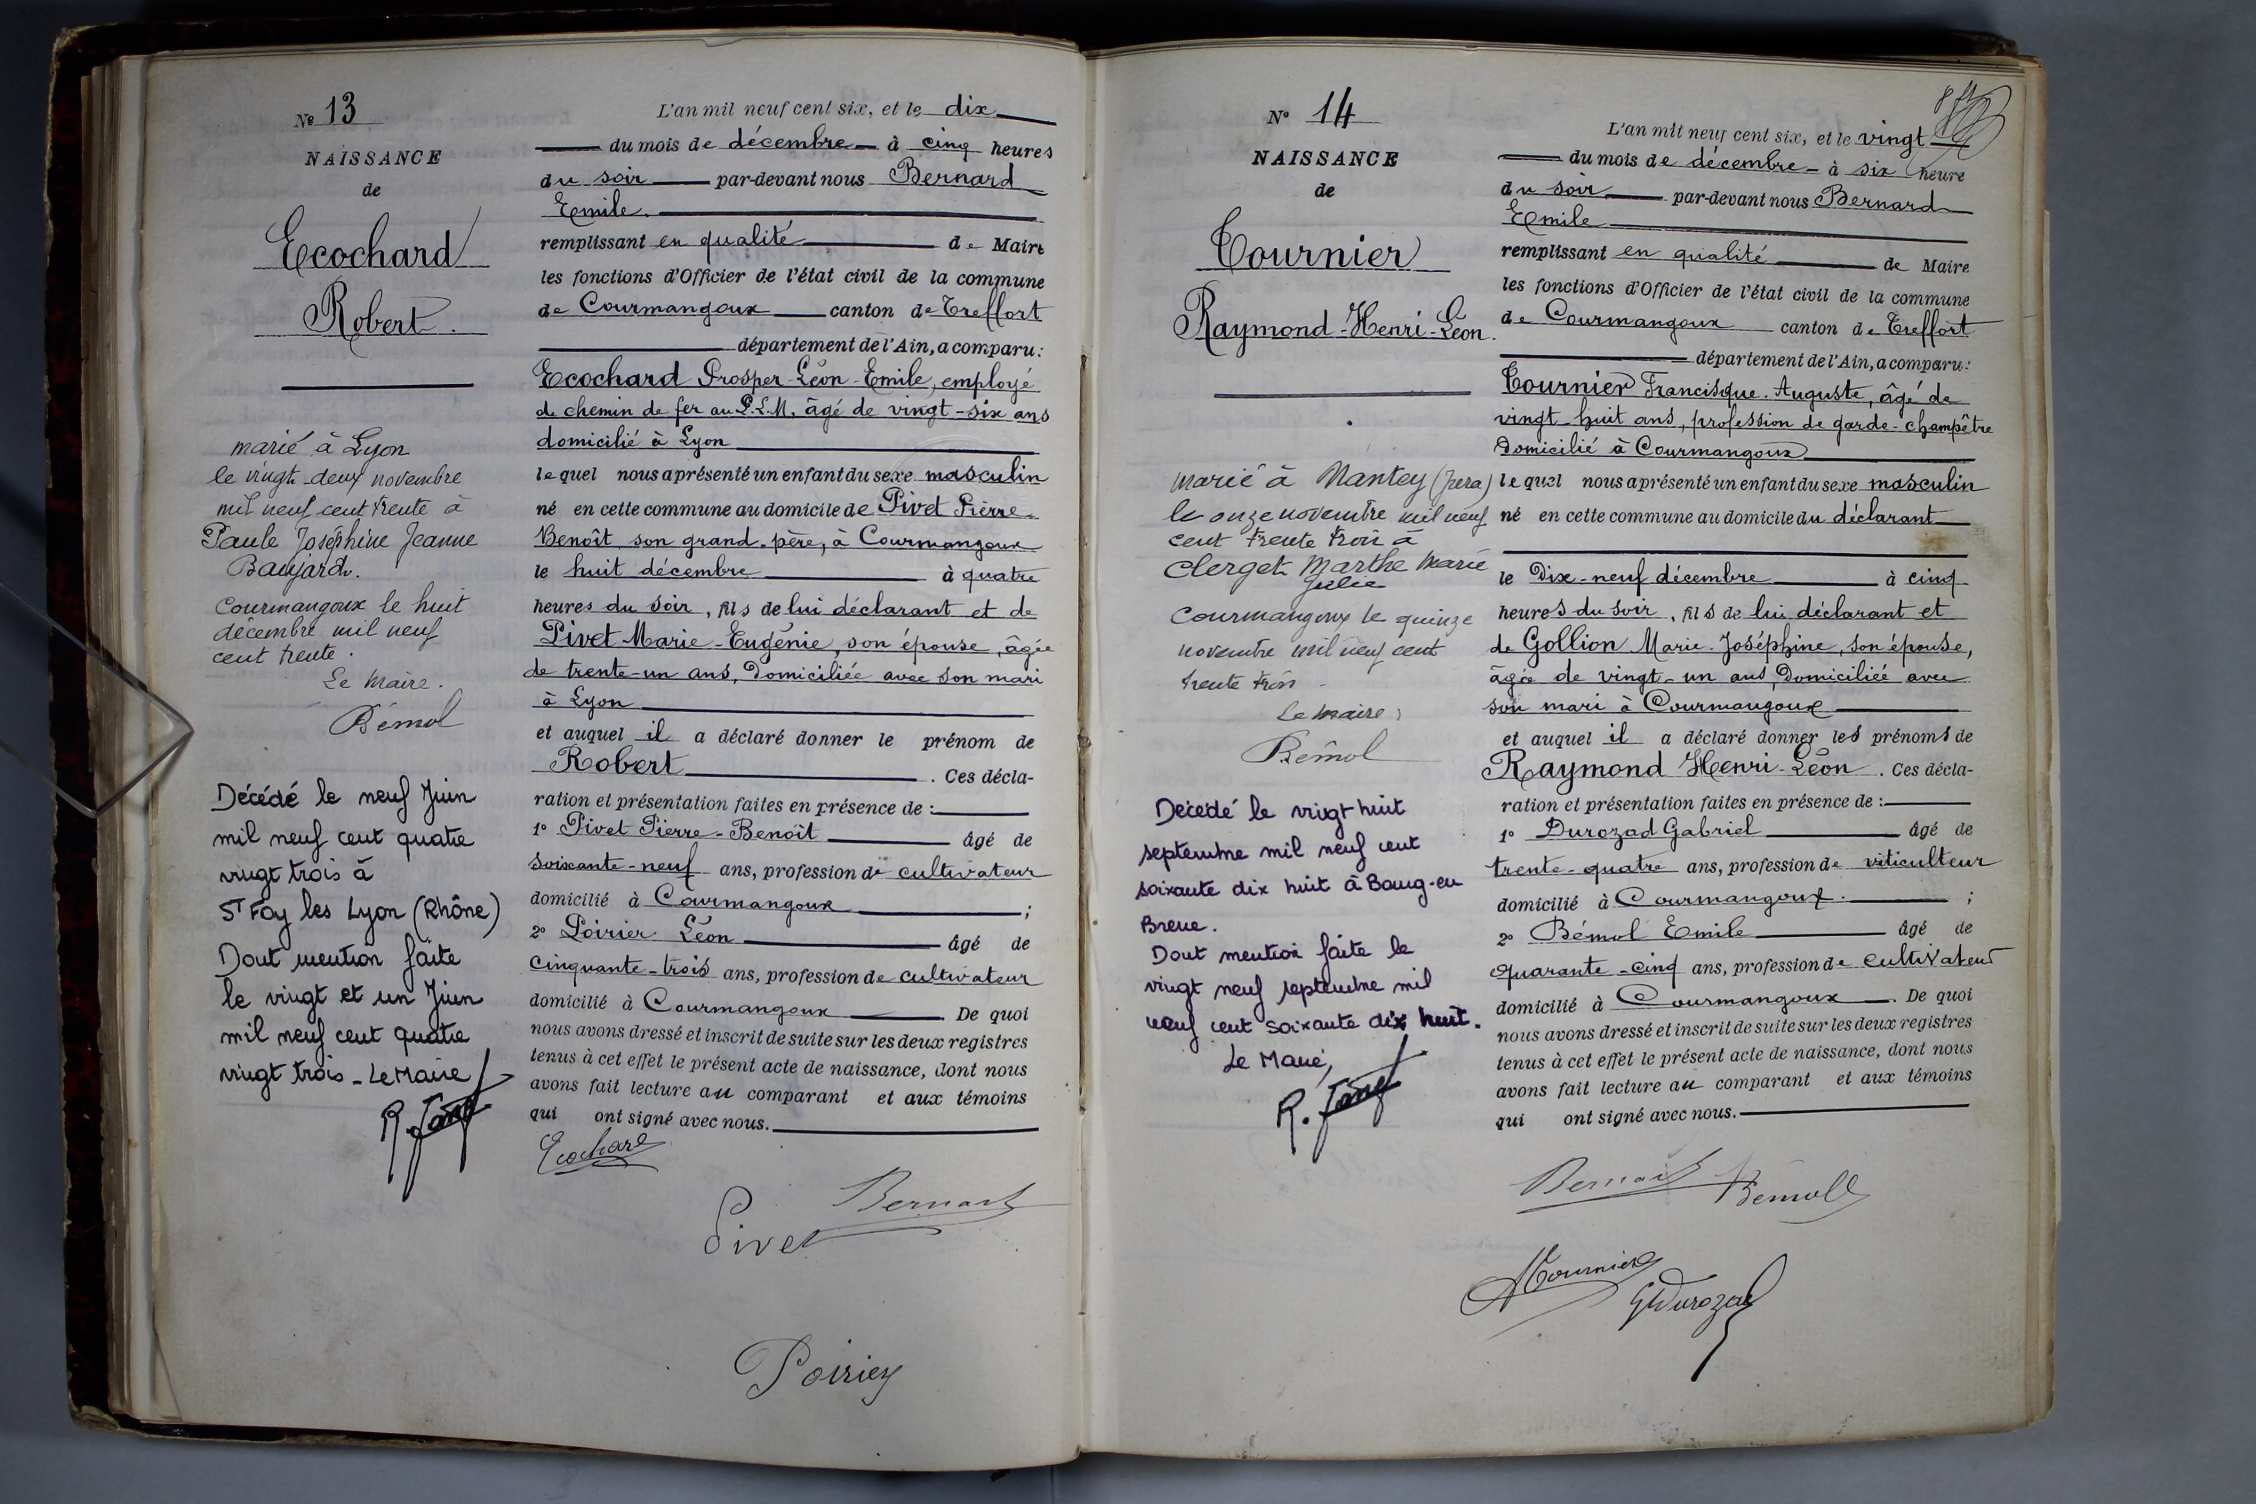 Nº 13
NAISSANCE
de
Ecochard
Robert.
marié à Lyon
le vingt deux novembre
mil neuf cent trente à
Paule Joséphine Jeanne
Courmangoux le huit
décembre mil neuf
cent trente.
Le Maire.
Bémol
Décédé le neuf Juin
mil neuf cent quatre
vingt trois à
ST Foy les Lyon (Rhône)
Dont mention faite
le vingt et un Juin
mil neuf cent quatre
vingt trois - Le Maire
L'an mil neuf cent six, et le dix
du mois de décembre à cinq heures
du soir par-devant nous Bernard
Emile.
remplissant en qualité de Maire
les fonctions d'Officier de l'état civil de la commune
de Courmangoux canton de Treffort
département de l'Ain, a comparu:
Ecochard Prosper-Léon-Emile, employé
de chemin de fer au P.L.M, âgé de vingt-six ans
domicilié à Lyon
lequel nous a présenté un enfant du sexe masculin
né en cette commune au domicile de Pivet Pierre-
Benoît son grand-père, à Courmangoux
le huit décembre à quatre
heures du soir, fils de lui déclarant et de
Pivet Marie-Eugénie, son épouse, âgée
de trente-un ans, Domiciliée avec son mari
à Lyon
et auquel il a déclaré donner le prénom de
Robert . Ces décla-
ration et présentation faites en présence de :
1º Pivet Pierre-Benoît âgé de
soixante-neuf ans, profession de cultivateur
domicilié à Courmangoux ;
2º Poirier Léon âgé de
cinquante-trois ans, profession de cultivateur
domicilié à Courmangoux . De quoi
nous avons dressé et inscrit de suite sur les deux registres
tenus à cet effet le présent acte de naissance, dont nous
avons fait lecture au comparant et aux témoins
qui ont signé avec nous.
Ecochard
Bernard
Pivet
Poirier
Nº 14
NAISSANCE
de
Tournier
Raymond-Henri-Léon.
marié à Nantey (Jura)
le onze novembre mil neuf
cent trente trois à
Clerget Marthe Marie
Julie
Courmangoux le quinze
novembre mil neuf cent
trente trois
Le Maire :
Bémol
Décédé le vingt huit
septembre mil neuf cent
soixante dix huit à Bourg-en
Bresse.
Dont mention faite le
vingt neuf septembre mil
neuf cent soixante dix huit.
Le Maire,
L'an mil neuf cent six, et le vingt
du mois de décembre à six heure
du soir par-devant nous Bernard
Emile
remplissant en qualité de Maire
les fonctions d'Officier de l'état civil de la commune
de Courmangoux canton de Treffort
département de l'Ain, a comparu:
Tournier Francisque-Auguste, âgé de
vingt-huit ans, profession de garde-champêtre
Domicilié à Courmangoux
lequel nous a présenté un enfant du sexe masculin
né en cette commune au domicile du déclarant
le Dix-neuf décembre à cinq
heures du soir, fils de lui déclarant et
de Gollion Marie-Joséphine, son épouse,
âgée de vingt-un ans, Domiciliée avec
son mari à Courmangoux
et auquel il a déclaré donner les prénoms de
Raymond Henri-Léon . Ces décla-
ration et présentation faites en présence de :
1º Durozad Gabriel âgé de
trente-quatre ans, profession de viticulteur
domicilié à Courmangoux. ;
2º Bémol Emile âgé de
quarante-cinq ans, profession de cultivateur
domicilié à Courmangoux . De quoi
nous avons dressé et inscrit de suite sur les deux registres
tenus à cet effet le présent acte de naissance, dont nous
avons fait lecture au comparant et aux témoins
qui ont signé avec nous.
Bernard Bémoll
ATournier
GDurozad